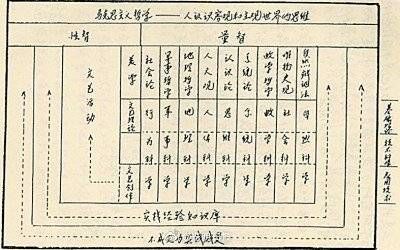 马克思主义哲学——人认识客观和主观世界的思维
性智
量智
文艺活动
美学
文艺理论
文艺创作
社会论
行为科学
军事哲学
军事科学
地理哲学
地理科学
人天观
人体科学
认识论
思维科学
系统论
系统科学
数学哲学
数学科学
唯物史观
社会科学
自然辩证法
自然科学
基础科学
技术科学
应用技术
实践经验知识库
不成文的实践感受